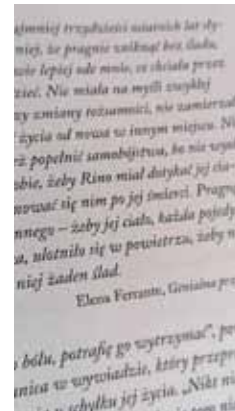 trzydziestu ostatnich lat
miej, że pragnie zniknąć bez śladu,
lepiej ode mnie, co chciała przez
Nie miała na myśli zwykłej
zmiany tożsamości, nie zamierzała
życia od nowa w innym miejscu. Ni
popełnić samobójstwa, bo nie
żeby Rino miał dotykać jej cia-
się nim po jej śmierci. Pragnę
nnego – żeby jej ciało, każda pojedy
a, ulotniło się w powietrzu, żeby n
niej żaden ślad.
Elena Ferrante, Genialna prz
bólu, potrafię go wytrzymać”, po
w wywiadzie, który przepro
schyłku jej życia. „Nikt ni